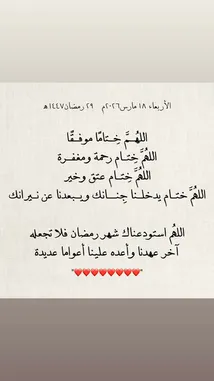 الأربعاء ١٨ مارس٢٠٢٦م ٢٩ رمضان١٤٤٧هـ
اللهُمَّ خِتامًا موفقًا
اللهُمَّ خِتام رحمة ومغفرة
اللهُمَّ خِتام عتق وخير
اللهُمَّ ختام يدخلنا جِنانك ويبعدنا عن نيرانك
اللهُم استودعناك شهر رمضان فلا تجعله
آخر عهدنا وأعده علينا أعواما عديدة
"❤❤❤❤❤❤❤❤"